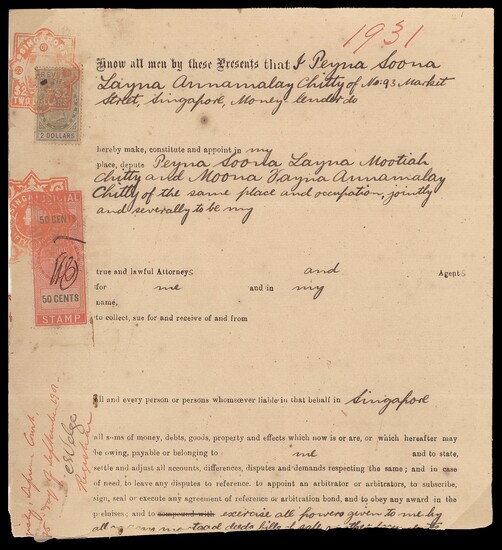 1931
Know all men by these Presents that I Peyna Soona
Layna Annamalay Chitty of No: 93 Market
Street, Singapore, Money lender do
hereby make, constitute and appoint in my
place, depute Peyna Soona Layna Mootiah
Chitty and Moona Vayna Annamalay
Chitty of the same place and occupation, jointly
and severally to be my
true and lawful Attorneys and Agents
for me and in my
name,
to collect, sue for and receive of and from
all and every person or persons whomsoever liable in that behalf in Singapore
all sums of money, debts, goods, property and effects which now is or are, or which hereafter may
be owing, payable or belonging to me and to state,
settle and adjust all accounts, differences, disputes and demands respecting the same; and in case
of need, to leave any disputes to reference, to appoint an arbitrator or arbitrators, to subscribe,
sign, seal or execute any agreement of reference or arbitration bond, and to obey any award in the
premises; and to compound with exercise all powers given to me by
all
REVENUE
2 DOLLARS
JUDICIAL
50 CENTS
50 CENTS
STAMP
day of September 1901